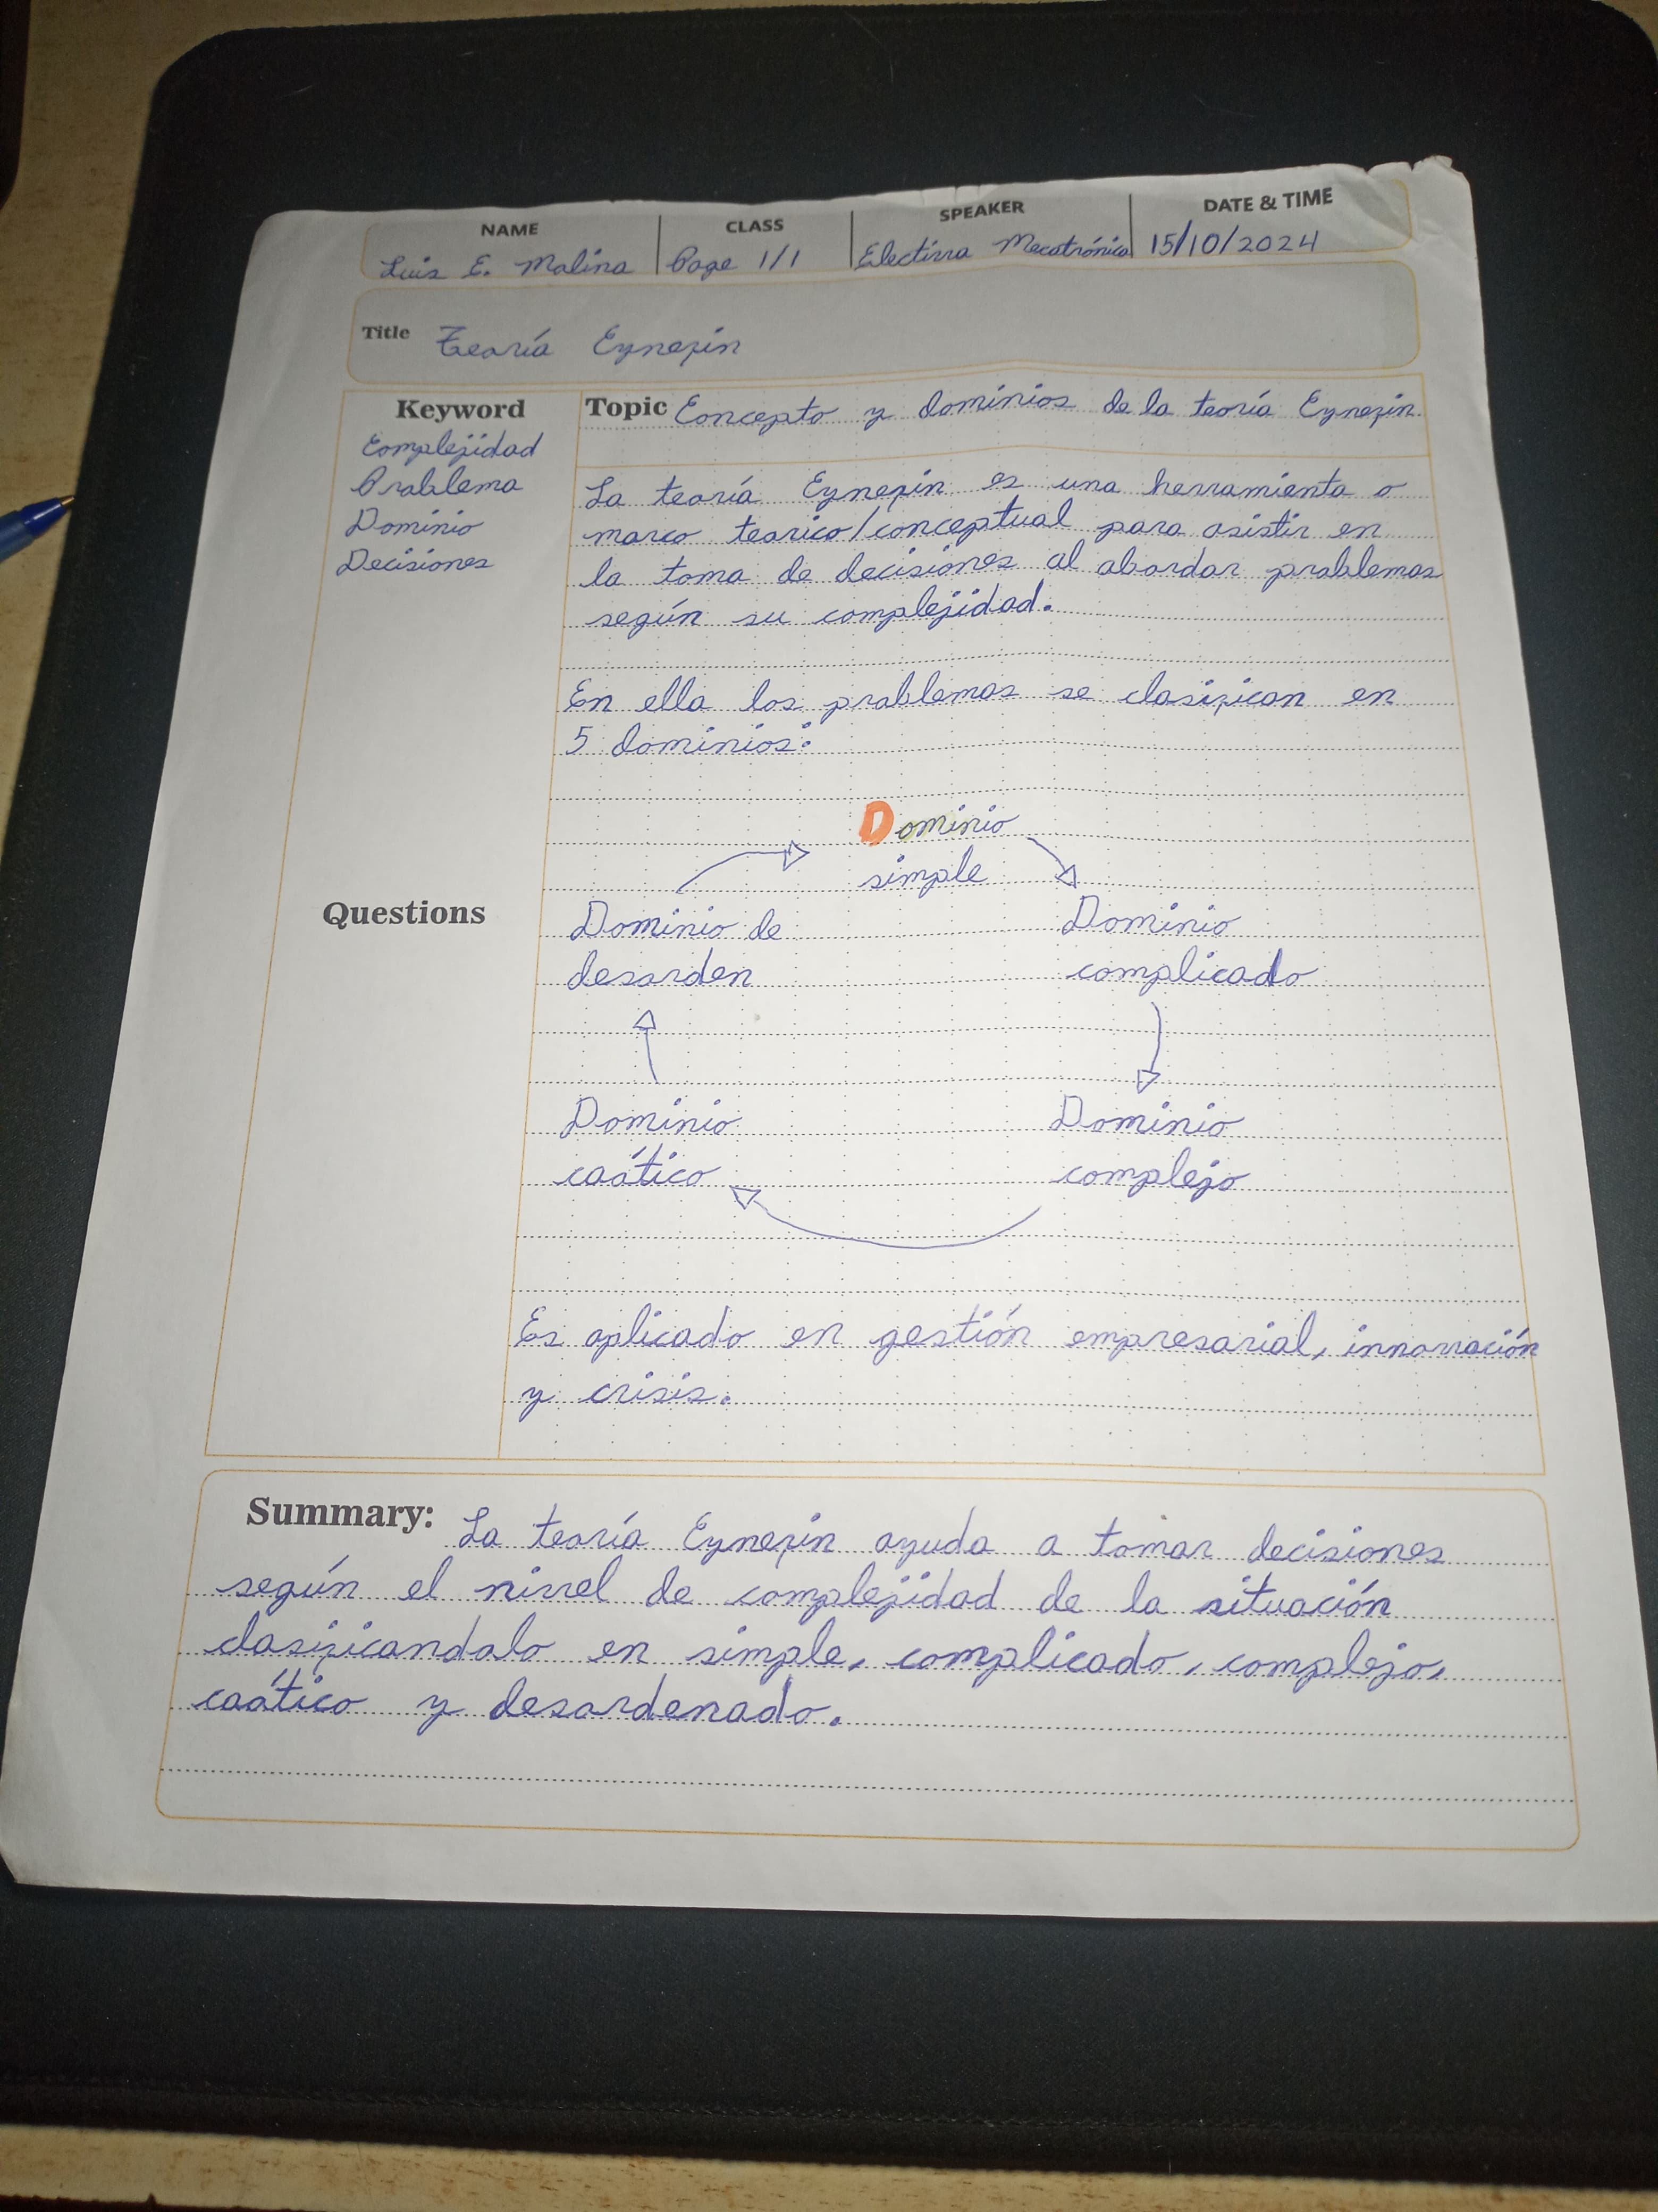 NAME
CLASS
SPEAKER
DATE & TIME
Luis E. Molina
Page 1/1
Electiva Mecatrónica
15/10/2024
Title Teoría Cynefin
Keyword
Complejidad
Problema
Dominio
Decisiones
Topic Concepto y dominios de la teoría Cynefin
La teoría Cynefin es una herramienta o
marco teorico/conceptual para asistir en
la toma de decisiones al abordar problemas
según su complejidad.
En ella los problemas se clasifican en
5 dominios:
Dominio
simple
Dominio de
desorden
Dominio
complicado
Dominio
caótico
Dominio
complejo
Es aplicado en gestión empresarial, innovación
y crisis.
Questions
Summary: La teoría Cynefin ayuda a tomar decisiones
según el nivel de complejidad de la situación
clasificandolo en simple, complicado, complejo,
caótico y desordenado.